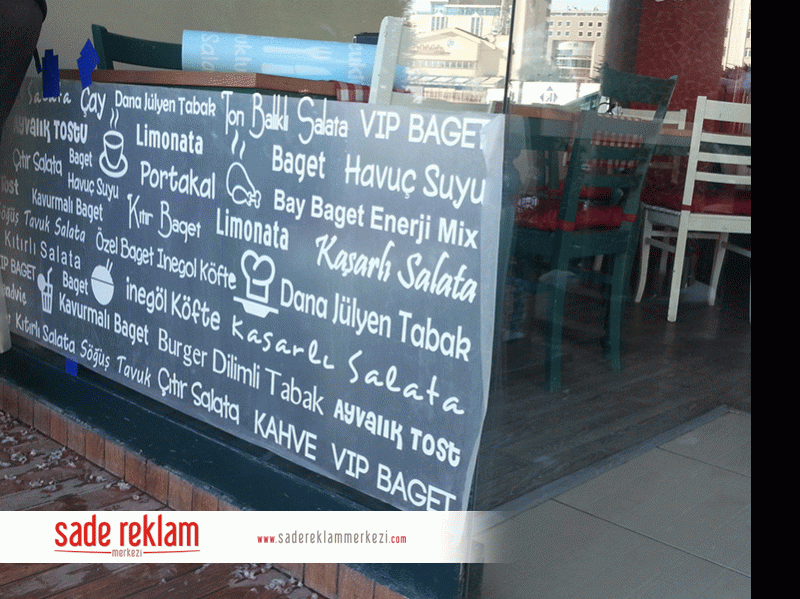 Çay Dana Jülyen Tabak Ton Balıklı Salata VIP BAGET
AYVALIK TOSTU Limonata Baget Havuç Suyu
Çıtır Salata Baget Portakal Bay Baget Enerji Mix
Tost Havuç Suyu
Kavurmalı Baget Kıtır Baget Limonata Kaşarlı Salata
Söğüş Tavuk Salata
Kıtırlı Salata Özel Baget Inegol Köfte Dana Jülyen Tabak
VIP BAGET Baget inegöl Köfte Kaşarlı Salata
Kavurmalı Baget Burger Dilimli Tabak AYVALIK TOST
Kıtırlı Salata Söğüş Tavuk Çıtır Salata KAHVE VIP BAGET
sade reklam
merkezi
www.sadereklammerkezi.com